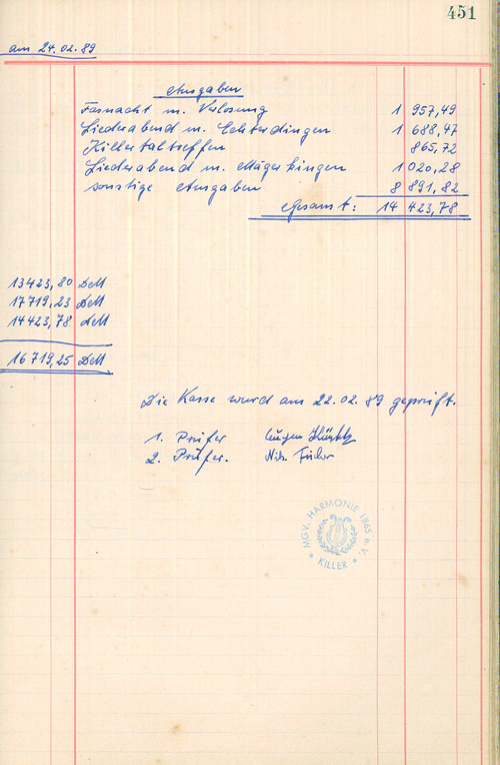 451
am 24.02.89
Ausgaben
Fasnacht m. Verlosung 1 957,49
Liederabend m. Echterdingen 1 688,47
Killertaltreffen 865,72
Liederabend m. Mägerkingen 1 020,28
sonstige Ausgaben 8 891,82
Gesamt: 14 423,78
13423,80 DM
17719,23 DM
14423,78 DM
16719,25 DM
Die Kasse wurd am 22.02.89 geprüft.
1. Prüfer Eugen
2. Prüfer.
MGV. HARMONIE 1865 e.V.
KILLER